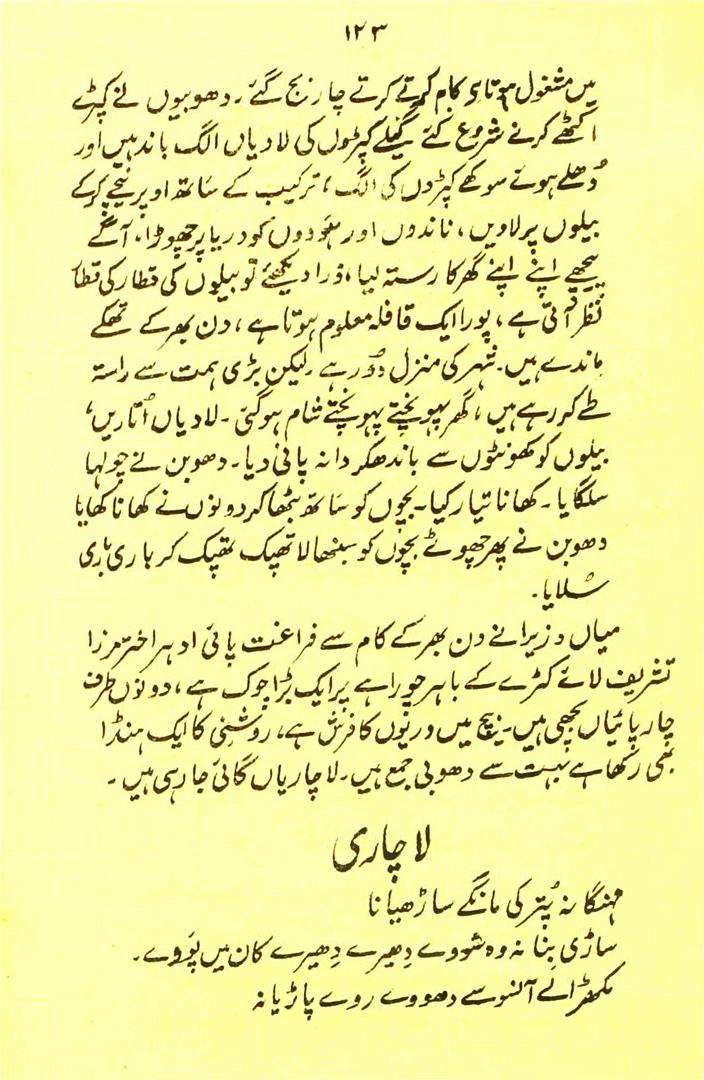 ۱۲۳
میں مشغول ہوتا کام کرتے کرتے چار بج گئے۔ دھوبیوں نے کپڑے
اکٹھے کرنے شروع کئے گیلے کپڑوں کی لادیاں الگ باندہیں اور
دُھلے ہوئے سوکھے کپڑوں کی الگ، ترکیب کے ساتھ اوپر نیچے کرکے
بیلوں پر لادیں، ناندوں اور سَودوں کو دریا پر چھوڑا، آگے
پیچھے اپنے اپنے گھر کا رستہ لیا، ذرا دیکھئے تو بیلوں کی قطار کی قطار
نظر آتی ہے، پورا ایک قافلہ معلوم ہوتا ہے، دن بھر کے تھکے
ماندے ہیں۔ شہر کی منزل دُور ہے۔ لیکن بڑی ہمت سے راستہ
طے کر رہے ہیں، گھر پہونچتے پہونچتے شام ہوگئی۔ لادیاں اُتاریں،
بیلوں کو کھونٹوں سے باندھکر دانہ پانی دیا۔ دھوبن نے چولہا
سلگایا۔ کھانا تیار کیا۔ بچوں کو ساتھ بٹھا کر دونوں نے کھانا کھایا
دھوبن نے پھر چھوٹے بچوں کو سنبھالا تھپک تھپک کر باری باری
سُلایا۔
میاں وزیرا نے دن بھر کے کام سے فراغت پائی ادہر اختر مرزا
تشریف لائے کٹرے کے باہر چوراہے پر ایک بڑا چوک ہے، دونوں طرف
چارپائیاں بچھی ہیں۔ بیچ میں دریوں کا فرش ہے، روشنی کا ایک ہنڈا
بھی رکھا ہے بہت سے دھوبی جمع ہیں۔ لاچاریاں گائی جا رہی ہیں۔
لاچاری
مہنگا نہ پُتر کی مانگے ساڑھیانا
ساڑی بِنا نہ وہ شووے دِھیرے دِھیرے کان میں پَووے۔
مکھڑا لے آنسو سے دھووے روے پاڑیا نہ